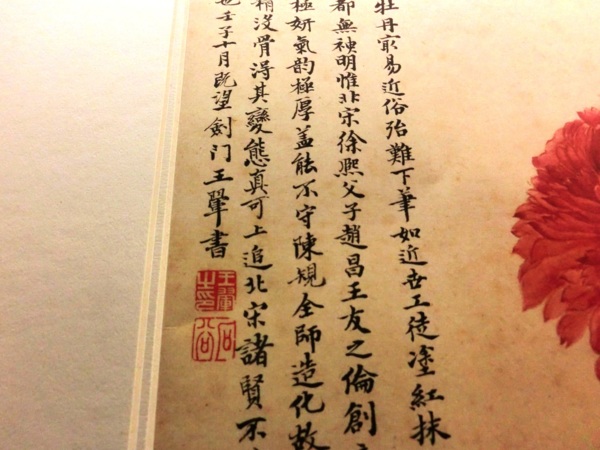 牡丹最易近俗殆難下筆如近世工徒塗紅抹
都無神明惟北宋徐熙父子趙昌王友之倫創
極妍氣韵極厚盖能不守陳規全師造化故
稍沒骨得其變態真可上追北宋諸賢不
也壬子十月既望劍門王翬書
王翬之印
石谷